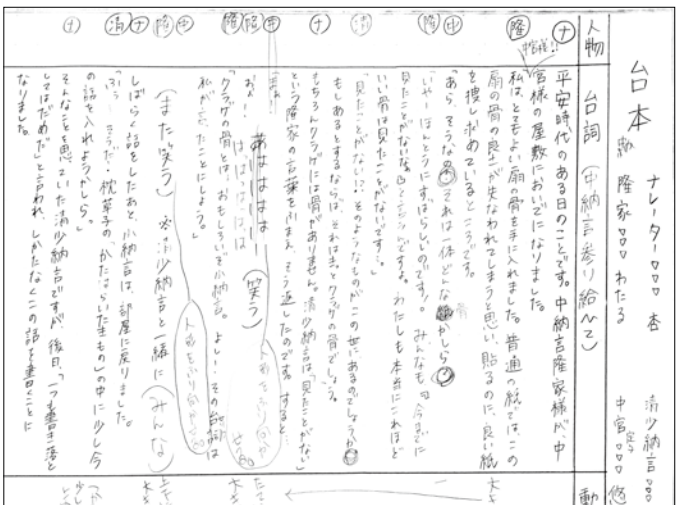 台本
ナレーター・・・杏
隆家・・・わたる
清少納言・・・
中宮定子・・・悠
人物
台詞（中納言参り給ひて）
動
ナ
平安時代のある日のことです。中納言隆家様が、中
宮様の屋敷においでになりました。
隆
中宮様!!
私は、とてもよい扇の骨を手に入れました。普通の紙では、この
扇の骨の良さが失なわれてしまうと思い、貼るのに、良い紙
を捜し求めているところです。
中
「あら、そうなの。それは一体どんな骨かしら。
隆
「いやーほんとうにすばらしいのです!。みんなも、今までに
見たことがないな
ですよ。わたしも本当にこれほど
いい骨は見たことがないです…。」
清
「見たことがない!?そのようなものがこの世にあるのでしょうか。
もしあるとするならば、それはきっとクラゲの骨でしょう。
ナ
もちろんクラゲには骨がありません。清少納言は「見たことがない」
という隆家の言葉をふまえ、そう返したのです。すると…
中
まぁ!
隆
お、
あははははは
ははははは
（笑う）
隆
「クラゲの骨とは、おもしろいぞ小納言。よし!その台詞は
私が言ったことにしよう。」
中
隆
（また笑う）
※清少納言と一緒に（みんな）
ナ
しばらく話をしたあと、小納言は、部屋に戻りました。
清
「ふぅ…そうだ・枕草子のかたはらいたきもの」の中に少し今
の話を入れようかしら。
ナ
そんなことを思っていた清少納言ですが、後日、「一つも書き落と
してはだめだ」と言われ、しかたなくこの話を書くことに
なりました。
大き